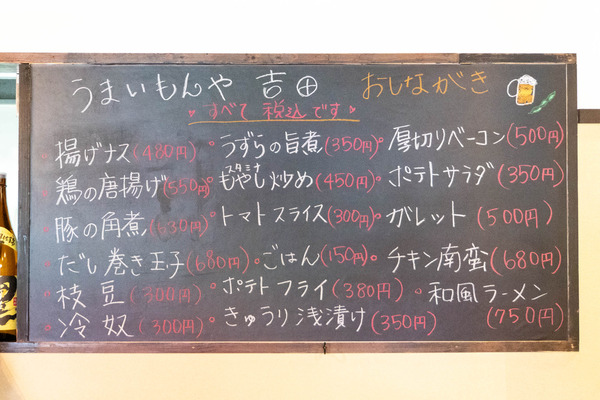 うまいもんや 吉田 おしながき
すべて 税込です
揚げナス(480円)
鶏の唐揚げ(550円)
豚の角煮(630円)
だし巻き玉子(680円)
枝豆(300円)
冷奴(300円)
うずらの旨煮(350円)
スタミナ
もやし炒め(450円)
トマトスライス(300円)
ごはん(150円)
ポテトフライ(380円)
きゅうり浅漬け(350円)
厚切りベーコン(500円)
ポテトサラダ(350円)
ガレット(500円)
チキン南蛮(680円)
和風ラーメン
(750円)